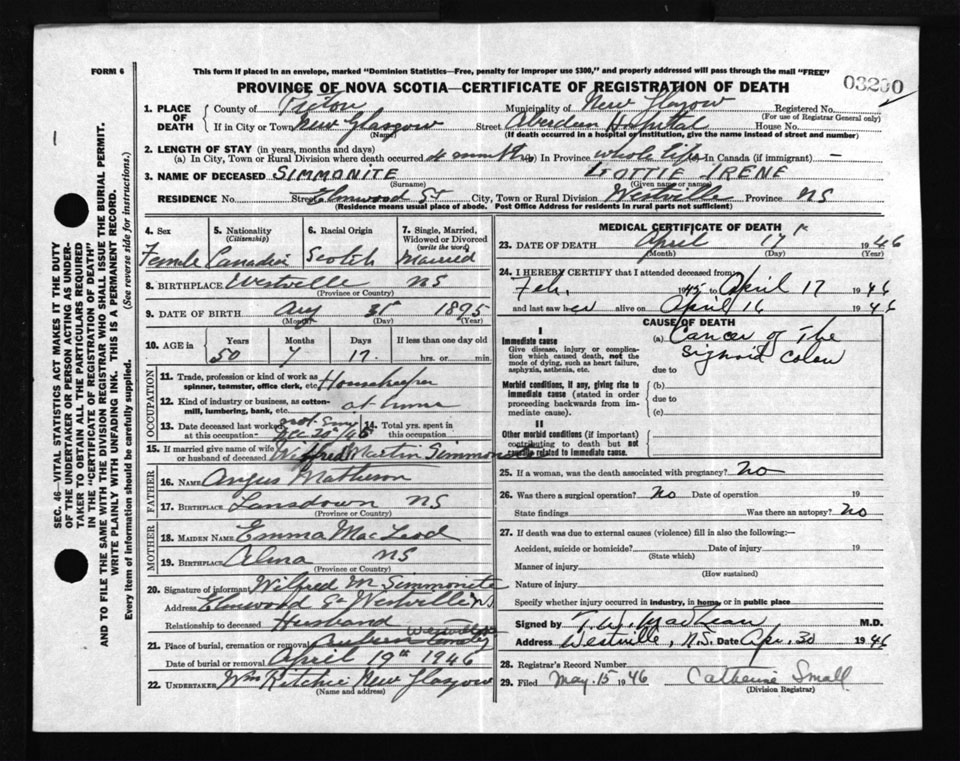 FORM 6
This form if placed in an envelope, marked "Dominion Statistics—Free, penalty for improper use $300," and properly addressed will pass through the mail "FREE"
PROVINCE OF NOVA SCOTIA—CERTIFICATE OF REGISTRATION OF DEATH
03230
1. PLACE OF DEATH
County of Pictou Municipality of New Glasgow Registered No.
(For use of Registrar General only)
If in City or Town New Glasgow Street Aberdeen Hospital House No.
(Name) (If death occurred in a hospital or institution, give the name instead of street and number)
2. LENGTH OF STAY (in years, months and days)
(a) In City, Town or Rural Division where death occurred months (b) In Province whole life In Canada (if immigrant) —
3. NAME OF DECEASED SIMMONITE LOTTIE IRENE
(Surname) (Given name or names)
RESIDENCE No. Street Elmwood St City, Town or Rural Division Westville Province NS
(Residence means usual place of abode. Post Office Address for residents in rural parts not sufficient)
4. Sex Female
5. Nationality (Citizenship) Canadian
6. Racial Origin Scotch
7. Single, Married, Widowed or Divorced (write the word) Married
8. BIRTHPLACE Westville NS
(Province or Country)
9. DATE OF BIRTH Aug 31st 1895
(Month) (Day) (Year)
10. AGE in Years 50 Months 7 Days 17 If less than one day old
hrs. or min.
OCCUPATION
11. Trade, profession or kind of work as spinner, teamster, office clerk, etc. Housekeeper
12. Kind of industry or business, as cotton-mill, lumbering, bank, etc. at home
13. Date deceased last worked at this occupation Dec 20th/45
14. Total yrs. spent in this occupation
15. If married give name of wife or husband of deceased Wilfred Martin Simmonite
FATHER
16. NAME Angus Matheson
17. BIRTHPLACE Lansdown NS
(Province or Country)
MOTHER
18. MAIDEN NAME Emma MacLeod
19. BIRTHPLACE Alma NS
(Province or Country)
20. Signature of informant Wilfred M Simmonite
Address Elmwood St Westville NS
Relationship to deceased Husband
21. Place of burial, cremation or removal Auburn Cemetery Westville
Date of burial or removal April 19th 1946
22. UNDERTAKER Wm Ritchie New Glasgow
(Name and address)
MEDICAL CERTIFICATE OF DEATH
23. DATE OF DEATH April 17th 1946
(Month) (Day) (Year)
24. I HEREBY CERTIFY that I attended deceased from:
Feb. 1945 to April 17 1946
and last saw her alive on April 16 1946
CAUSE OF DEATH
I
Immediate cause
Give disease, injury or complication which caused death, not the mode of dying, such as heart failure, asphyxia, asthenia, etc.
(a) Cancer of The Sigmoid Colon
due to
Morbid conditions, if any, giving rise to immediate cause (stated in order proceeding backwards from immediate cause).
(b)
due to
(c)
II
Other morbid conditions (if important) contributing to death but not causally related to immediate cause.
25. If a woman, was the death associated with pregnancy? No
26. Was there a surgical operation? No Date of operation 19
State findings Was there an autopsy? No
27. If death was due to external causes (violence) fill in also the following:—
Accident, suicide or homicide? Date of injury 19
(State which)
Manner of injury
(How sustained)
Nature of injury
Specify whether injury occurred in industry, in home, or in public place
Signed by T.W. MacLean M.D.
Address Westville, N.S. Date Apr. 30 1946
28. Registrar's Record Number
29. Filed May. 15 1946 Catherine Small
(Division Registrar)
SEC. 46—VITAL STATISTICS ACT MAKES IT THE DUTY
OF THE UNDERTAKER OR PERSON ACTING AS UNDER-
TAKER TO OBTAIN ALL THE PARTICULARS REQUIRED
IN THE "CERTIFICATE OF REGISTRATION OF DEATH"
AND TO FILE THE SAME WITH THE DIVISION REGISTRAR WHO SHALL ISSUE THE BURIAL PERMIT.
WRITE PLAINLY WITH UNFADING INK. THIS IS A PERMANENT RECORD.
Every item of information should be carefully supplied. (See reverse side for instructions.)